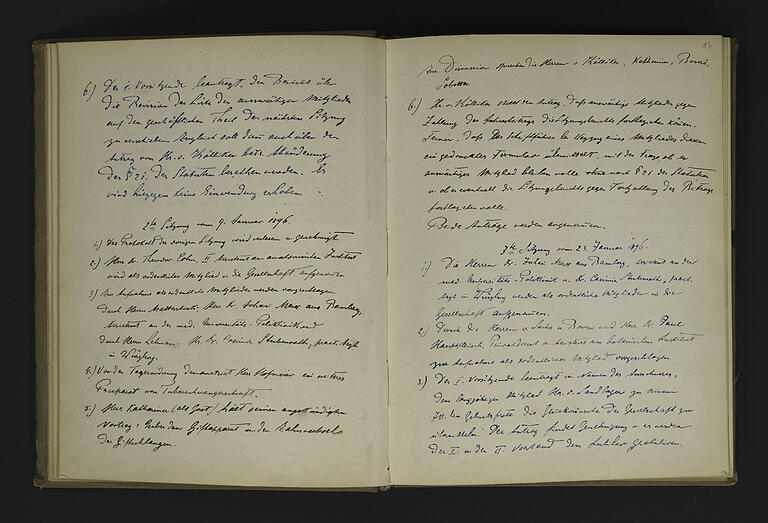 6.) Der I. Vorsitzende beantragt, den Bericht über
die Revision der Liste der auswärtigen Mitglieder
auf den geschäftlichen Theil der nächsten Sitzung
zu verschieben. Zugleich soll dann auch über den
Antrag von Hr. v. Kölliker betr. Abänderung
des § 21. der Statuten berathen werden. Es
wird hiegegen keine Einwendung erhoben.
2te Sitzung vom 9. Januar 1896.
1.) Das Protokoll der vorigen Sitzung wird verlesen u. genehmigt.
2.) Herr Dr. Theodor Cohn, II Assistent am anatomischen Institut
wird als ordentliches Mitglied in die Gesellschaft aufgenommen
3.) Zur Aufnahme als ordentliche Mitglieder werden vorgeschlagen
durch Herrn Matterstock: Herr Dr. Marx aus Bamberg,
Assistent an der med. Universitäts-Poliklinik und
durch Herrn Lehmann: Hr. Dr. Casimir pract. Arzt
in Würzburg.
4.) Vor der Tagesordnung demonstrirt Herr Hofmeier ein weiteres
Präparat von Tubenschwangerschaft.
5.) Herr Kathariner (als Gast) hält seinen angekündigten
Vortrag: Ueber den Giftapparat u. den Zahnwechsel
der Giftschlangen.
14
An der Discussion sprechen die Herren v. Kölliker, Kathariner, Boveri,
Sobotta.
6.) Hr. v. Kölliker stellt den Antrag, daß auswärtige Mitglieder gegen
Zahlung des Jahresbeitrags die Sitzungsberichte fortbeziehen können.
Ferner, daß der Schriftführer bei Wegzug eines Mitgliedes diesem
ein gedrucktes Formular übermittelt, mit der Frage ob er
auswärtiges Mitglied bleiben wolle ohne nach § 21 der Statuten
u. ob er eventuell die Sitzungsberichte gegen Fortzahlung des Beitrags
fortbeziehen wolle.
Beide Anträge werden angenommen.
3te Sitzung vom 23. Januar 1896.
1.) Die Herren Dr. Marx aus Bamberg, Assistent an der
med. Universitäts-Poliklinik u. Dr. Casimir pract.
Arzt in Würzburg werden als ordentliche Mitglieder in die
Gesellschaft aufgenommen.
2.) Durch die Herren v. Sachs u. Boveri wird Herr Dr. Paul
Hauptfleisch, Privatdocent u. Assistent am botanischen Institut
zur Aufnahme als ordentliches Mitglied vorgeschlagen
3.) Der I. Vorsitzende beantragt im Namen des Ausschusses,
dem langjährigen Mitglied Hr. v. Sandberger zu seinem
70. ten Geburtsfeste die Glückwünsche der Gesellschaft zu
übermitteln. Der Antrag findet Genehmigung u. es werden
der I. u. der II. Vorstand dem Jubilar gratuliren.